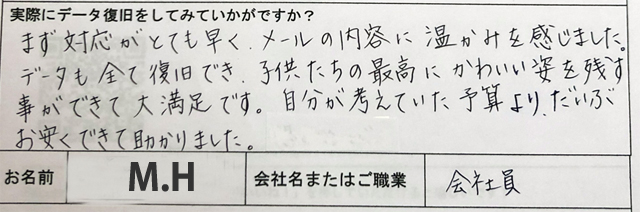 実際にデータ復旧をしてみていかがですか？
まず対応がとても早く、メールの内容に温かみを感じました。
データも全て復旧でき、子供たちの最高にかわいい姿を残す
事ができて大満足です。自分が考えていた予算より、だいぶ
お安くできて助かりました。
お名前 M.H 会社名またはご職業 会社員